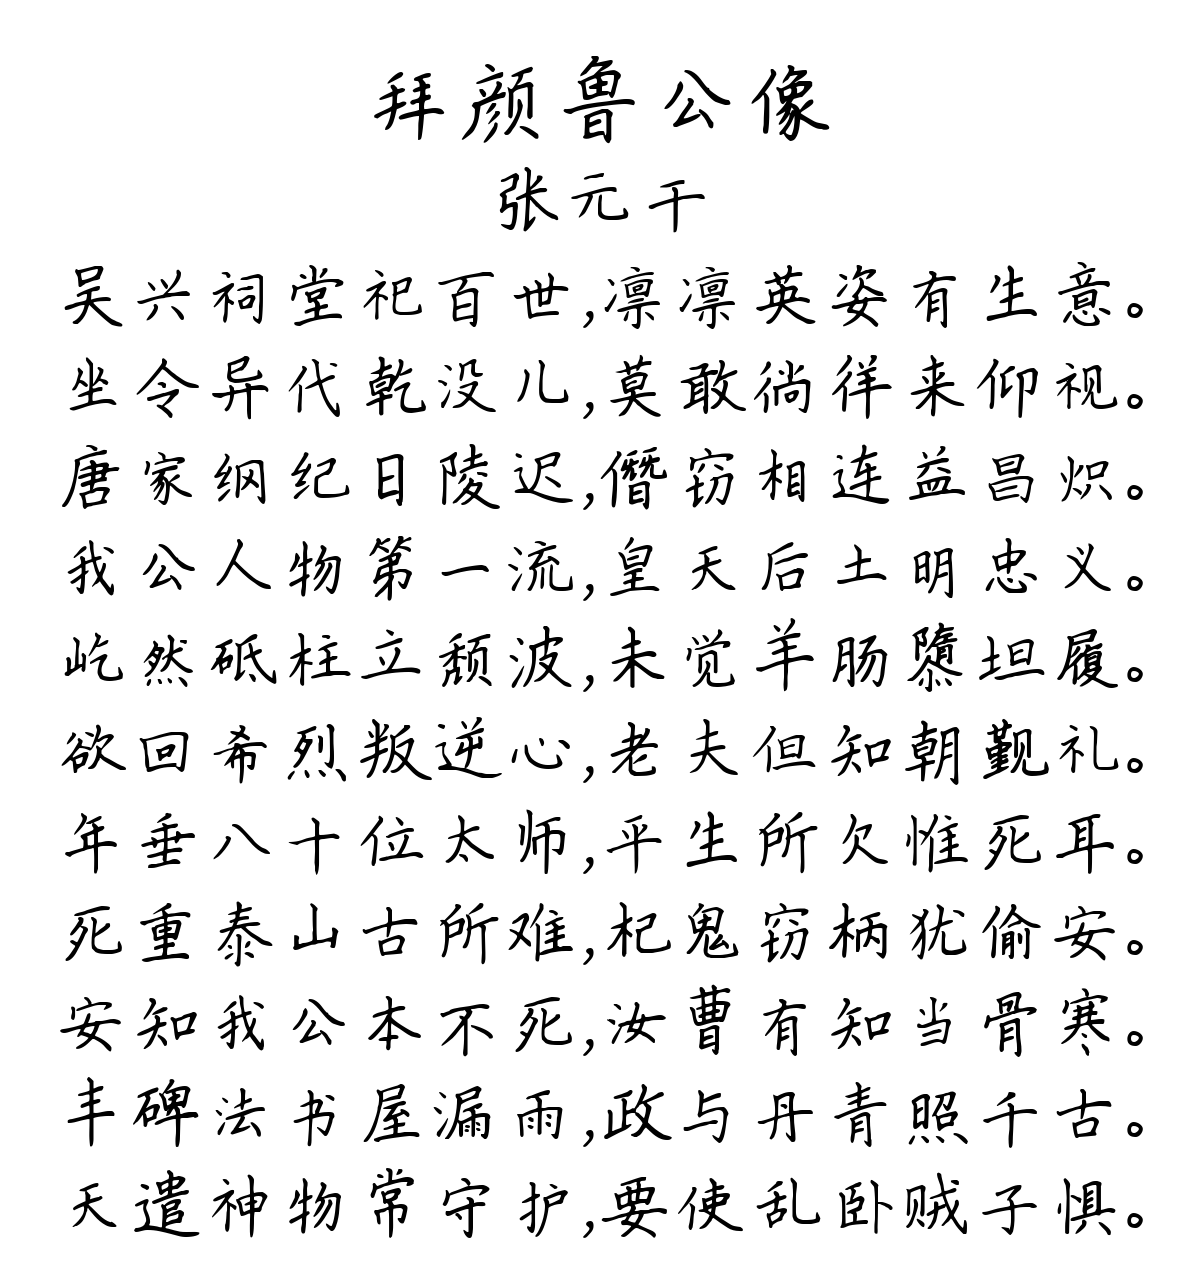 拜颜鲁公像
张元干
吴兴祠堂祀百世,凛凛英姿有生意。
坐令异代乾没儿,莫敢徜徉来仰视。
唐家纲纪日陵迟,僭窃相连益昌炽。
我公人物第一流,皇天后土明忠义。
屹然砥柱立颓波,未觉羊肠隳坦履。
欲回希烈叛逆心,老夫但知朝觐礼。
年垂八十位太师,平生所欠惟死耳。
死重泰山古所难,杞鬼窃柄犹偷安。
安知我公本不死,汝曹有知当骨寒。
丰碑法书屋漏雨,政与丹青照千古。
天遣神物常守护,要使乱卧贼子惧。